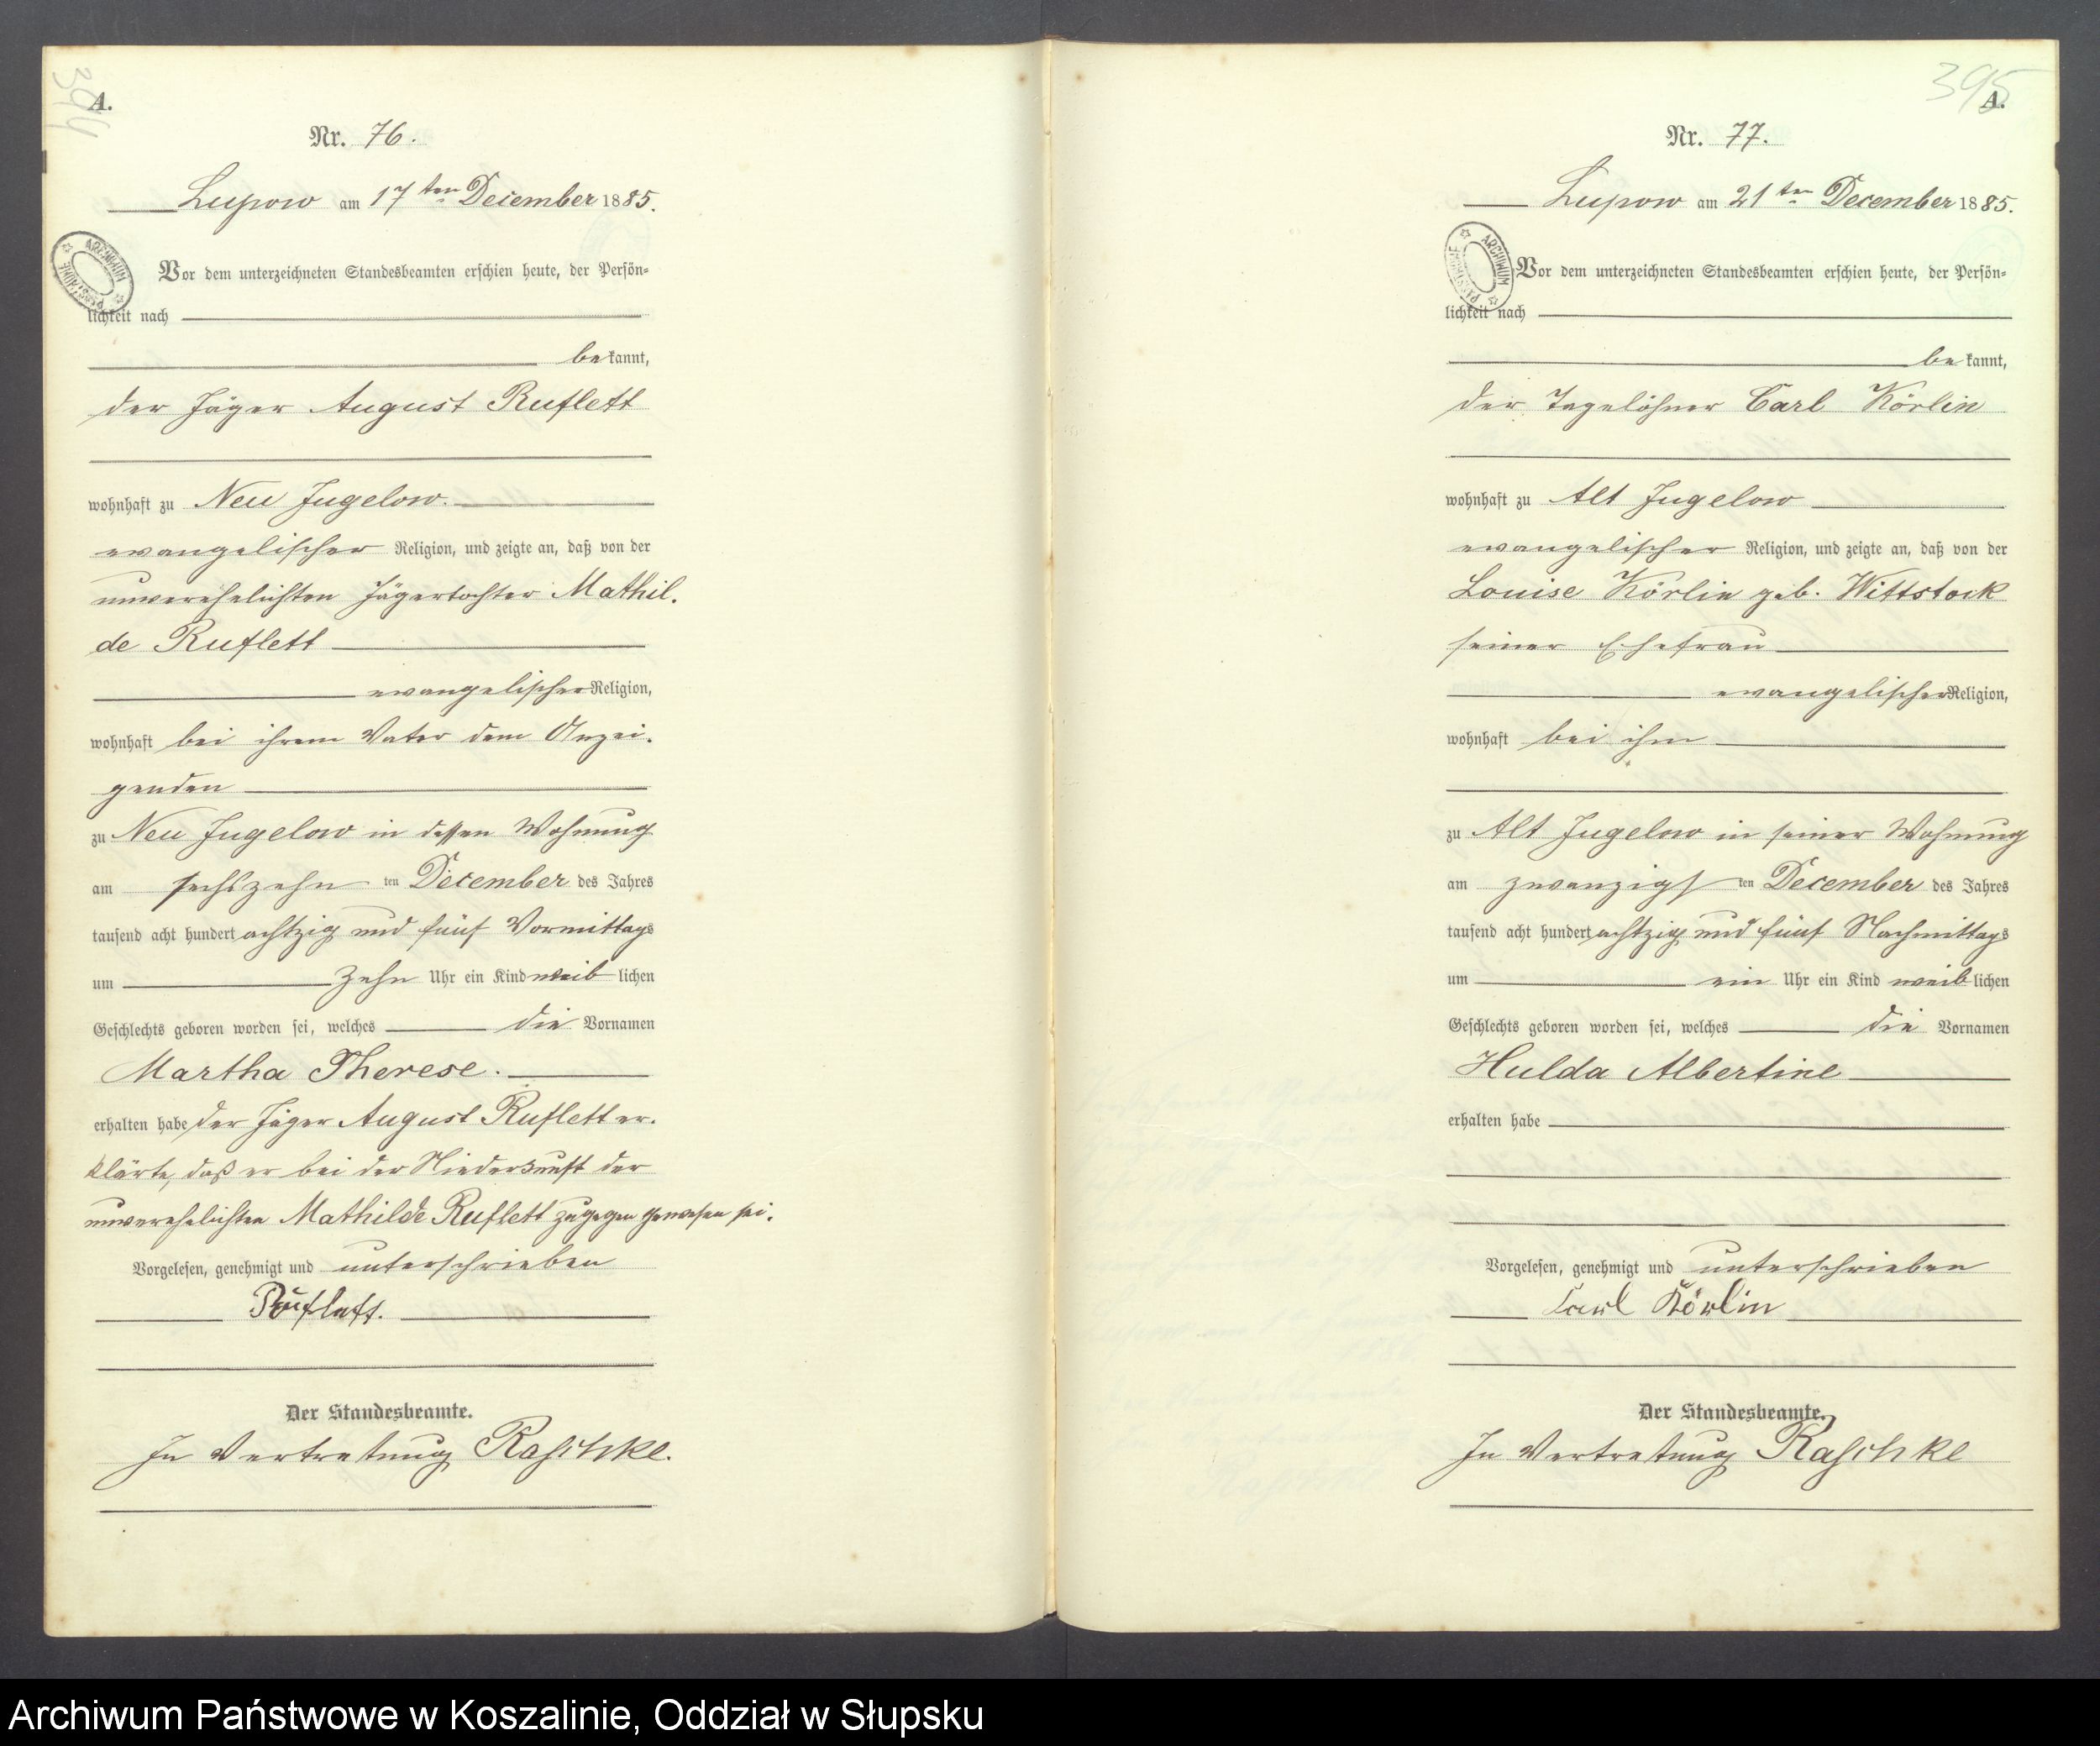 394
A.
Nr. 76.
Lupow am 17ten December 1885.
ARCHIWUM PAŃSTWOWE
Vor dem unterzeichneten Standesbeamten erschien heute, der Persön=
lichkeit nach
bekannt,
der Jäger August Ruflett
wohnhaft zu Neu Jugelow.
evangelischer Religion, und zeigte an, daß von der
unverehelichten Jägertochter Mathil-
de Ruflett
evangelischer Religion,
wohnhaft bei ihrem Vater dem Anzei-
genden
zu Neu Jugelow in dessen Wohnung
am sechszehn ten December des Jahres
tausend acht hundert achtzig und fünf Vormittags
um zehn Uhr ein Kind weiblichen
Geschlechts geboren worden sei, welches die Vornamen
Martha Therese.
erhalten habe der Jäger August Ruflett er-
klärte, daß er bei der Niederkunft der
unverehelichten Mathilde Ruflett zugegen gewesen sei.
Vorgelesen, genehmigt und unterschrieben
Ruflett.
Der Standesbeamte.
In Vertretung Raschke.
395
A.
Nr. 77.
Lupow am 21ten December 1885.
ARCHIWUM PAŃSTWOWE
Vor dem unterzeichneten Standesbeamten erschien heute, der Persön=
lichkeit nach
bekannt,
der Tagelöhner Carl Körlin
wohnhaft zu Alt Jugelow
evangelischer Religion, und zeigte an, daß von der
Louise Körlin geb. Wittstock
seiner Ehefrau
evangelischer Religion,
wohnhaft bei ihm
zu Alt Jugelow in seiner Wohnung
am zwanzigsten December des Jahres
tausend acht hundert achtzig und fünf Nachmittags
um ein Uhr ein Kind weiblichen
Geschlechts geboren worden sei, welches die Vornamen
Hulda Albertine
erhalten habe
Vorgelesen, genehmigt und unterschrieben
Carl Körlin
Der Standesbeamte.
In Vertretung Raschke
Archiwum Państwowe w Koszalinie, Oddział w Słupsku